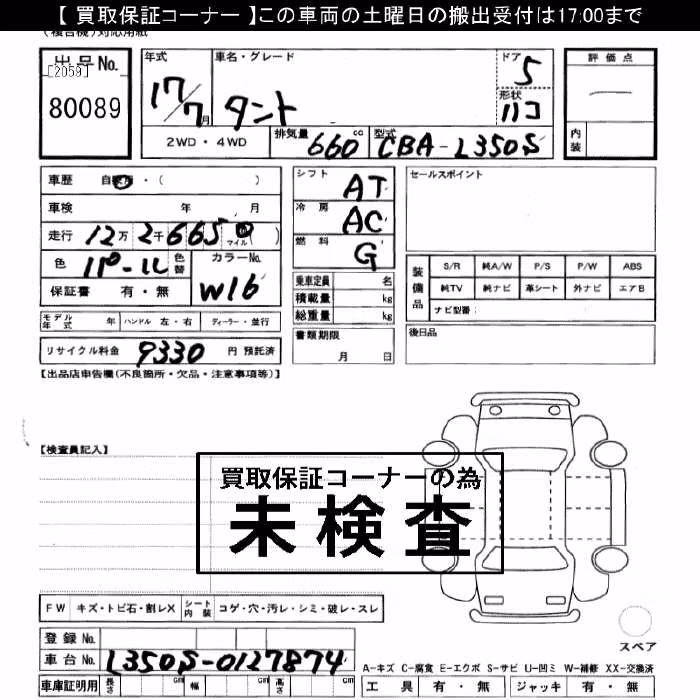 【 買取保証コーナー 】この車両の土曜日の搬出受付は17:00まで
出品No.
[2059]
80089
年式
17/7月
車名・グレード
タント
ドア
5
形状
ハコ
評価点
内装
2WD・4WD
排気量
660 cc
型式
CBA-L350S
車歴 自家用・( )
車検 年 月
走行 12万2千665 0 (マイル)
色 パール 色替
カラーNo.
W16
保証書 有・無
シフト
AT
冷房
AC
燃料
G
乗車定員 名
積載量 kg
総重量 kg
セールスポイント
装備品
S/R 純A/W P/S P/W ABS
純TV 純ナビ 革シート 外ナビ エアB
ナビ型番:
モデル年式 年 ハンドル 左・右 ディーラー・並行
書類期限
月 日
後日品
リサイクル料金 9330 円 預託済
【出品店申告欄(不良箇所・欠品・注意事項等)】
【検査員記入】
買取保証コーナーの為
未検査
FW キズ・トビ石・割レX シート内装 コゲ・穴・汚レ・シミ・破レ・スレ
スペア
登録No.
車台No. L350S-0127874
A-キズ C-腐食 E-エクボ S-サビ U-凹ミ W-補修 XX-交換済
車庫証明用 長さ cm 幅 cm 高さ cm
工具 有・無 ジャッキ 有・無